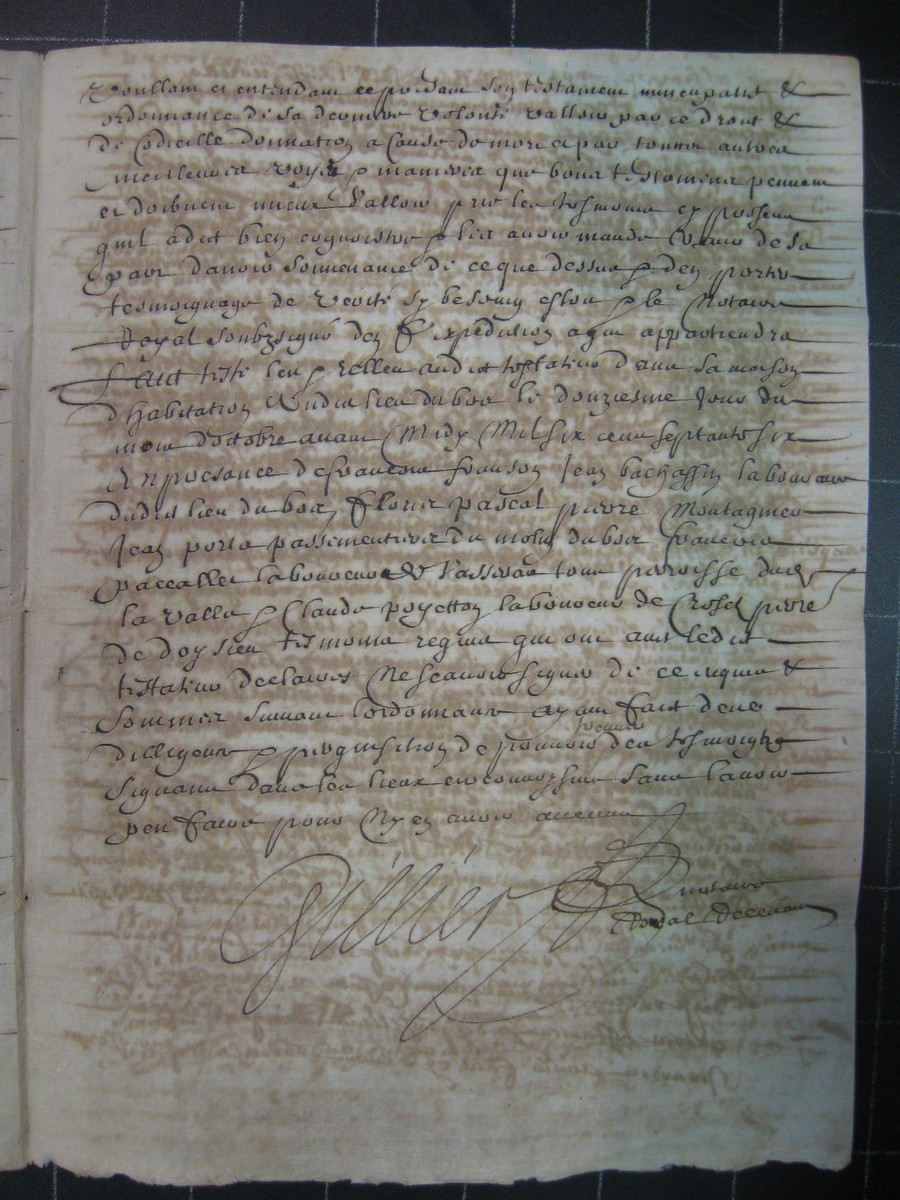 Voullant et entendant ce pnt son testament nuncupatif &
ordonnance de sa derniere volonté valloir par ce droit &
de codicille donnation a cause de mort et par touttes autres
meilleures voyes & manieres que bons testaments peuvent
et doibvent mieux valloir prie les tesmoins cy
quil a dit bien cognoistre & les avoir mandé de sa
part davoir souvenance de ce que dessus & den porter
tesmoignage de verité sy besoing est & le Notaire
Royal soubzsigné den expedition a qui appartiendra
faict leu & releu audit testateur dans sa maison
dhabitation dudit lieu du bois le douziesme jour du
mois doctobre avant Midy Mil six cens septante six
En presence de francois Jean bachassin laboureurs
dudit lieu du bois fleurie pascal pierre Montagnier
Jean porte passementiers du molin du bois francois
paccallet laboureur de tous parroisse dudit
la valla & Claude poyetton laboureur de pierre
de doysieu tesmoins requis qui ont avec ledit
testateur declarés Ne scavoir signer de ce enquis &
Sommes suivant lordonnance ayant fait deue
dilligence & perquisition de pouvoir trouver des tesmoings
signants dans les lieux circonvoysins sans lavoir
peu faire pour Ny en avoir aucuns
Gillier notaire
Royal Recevant